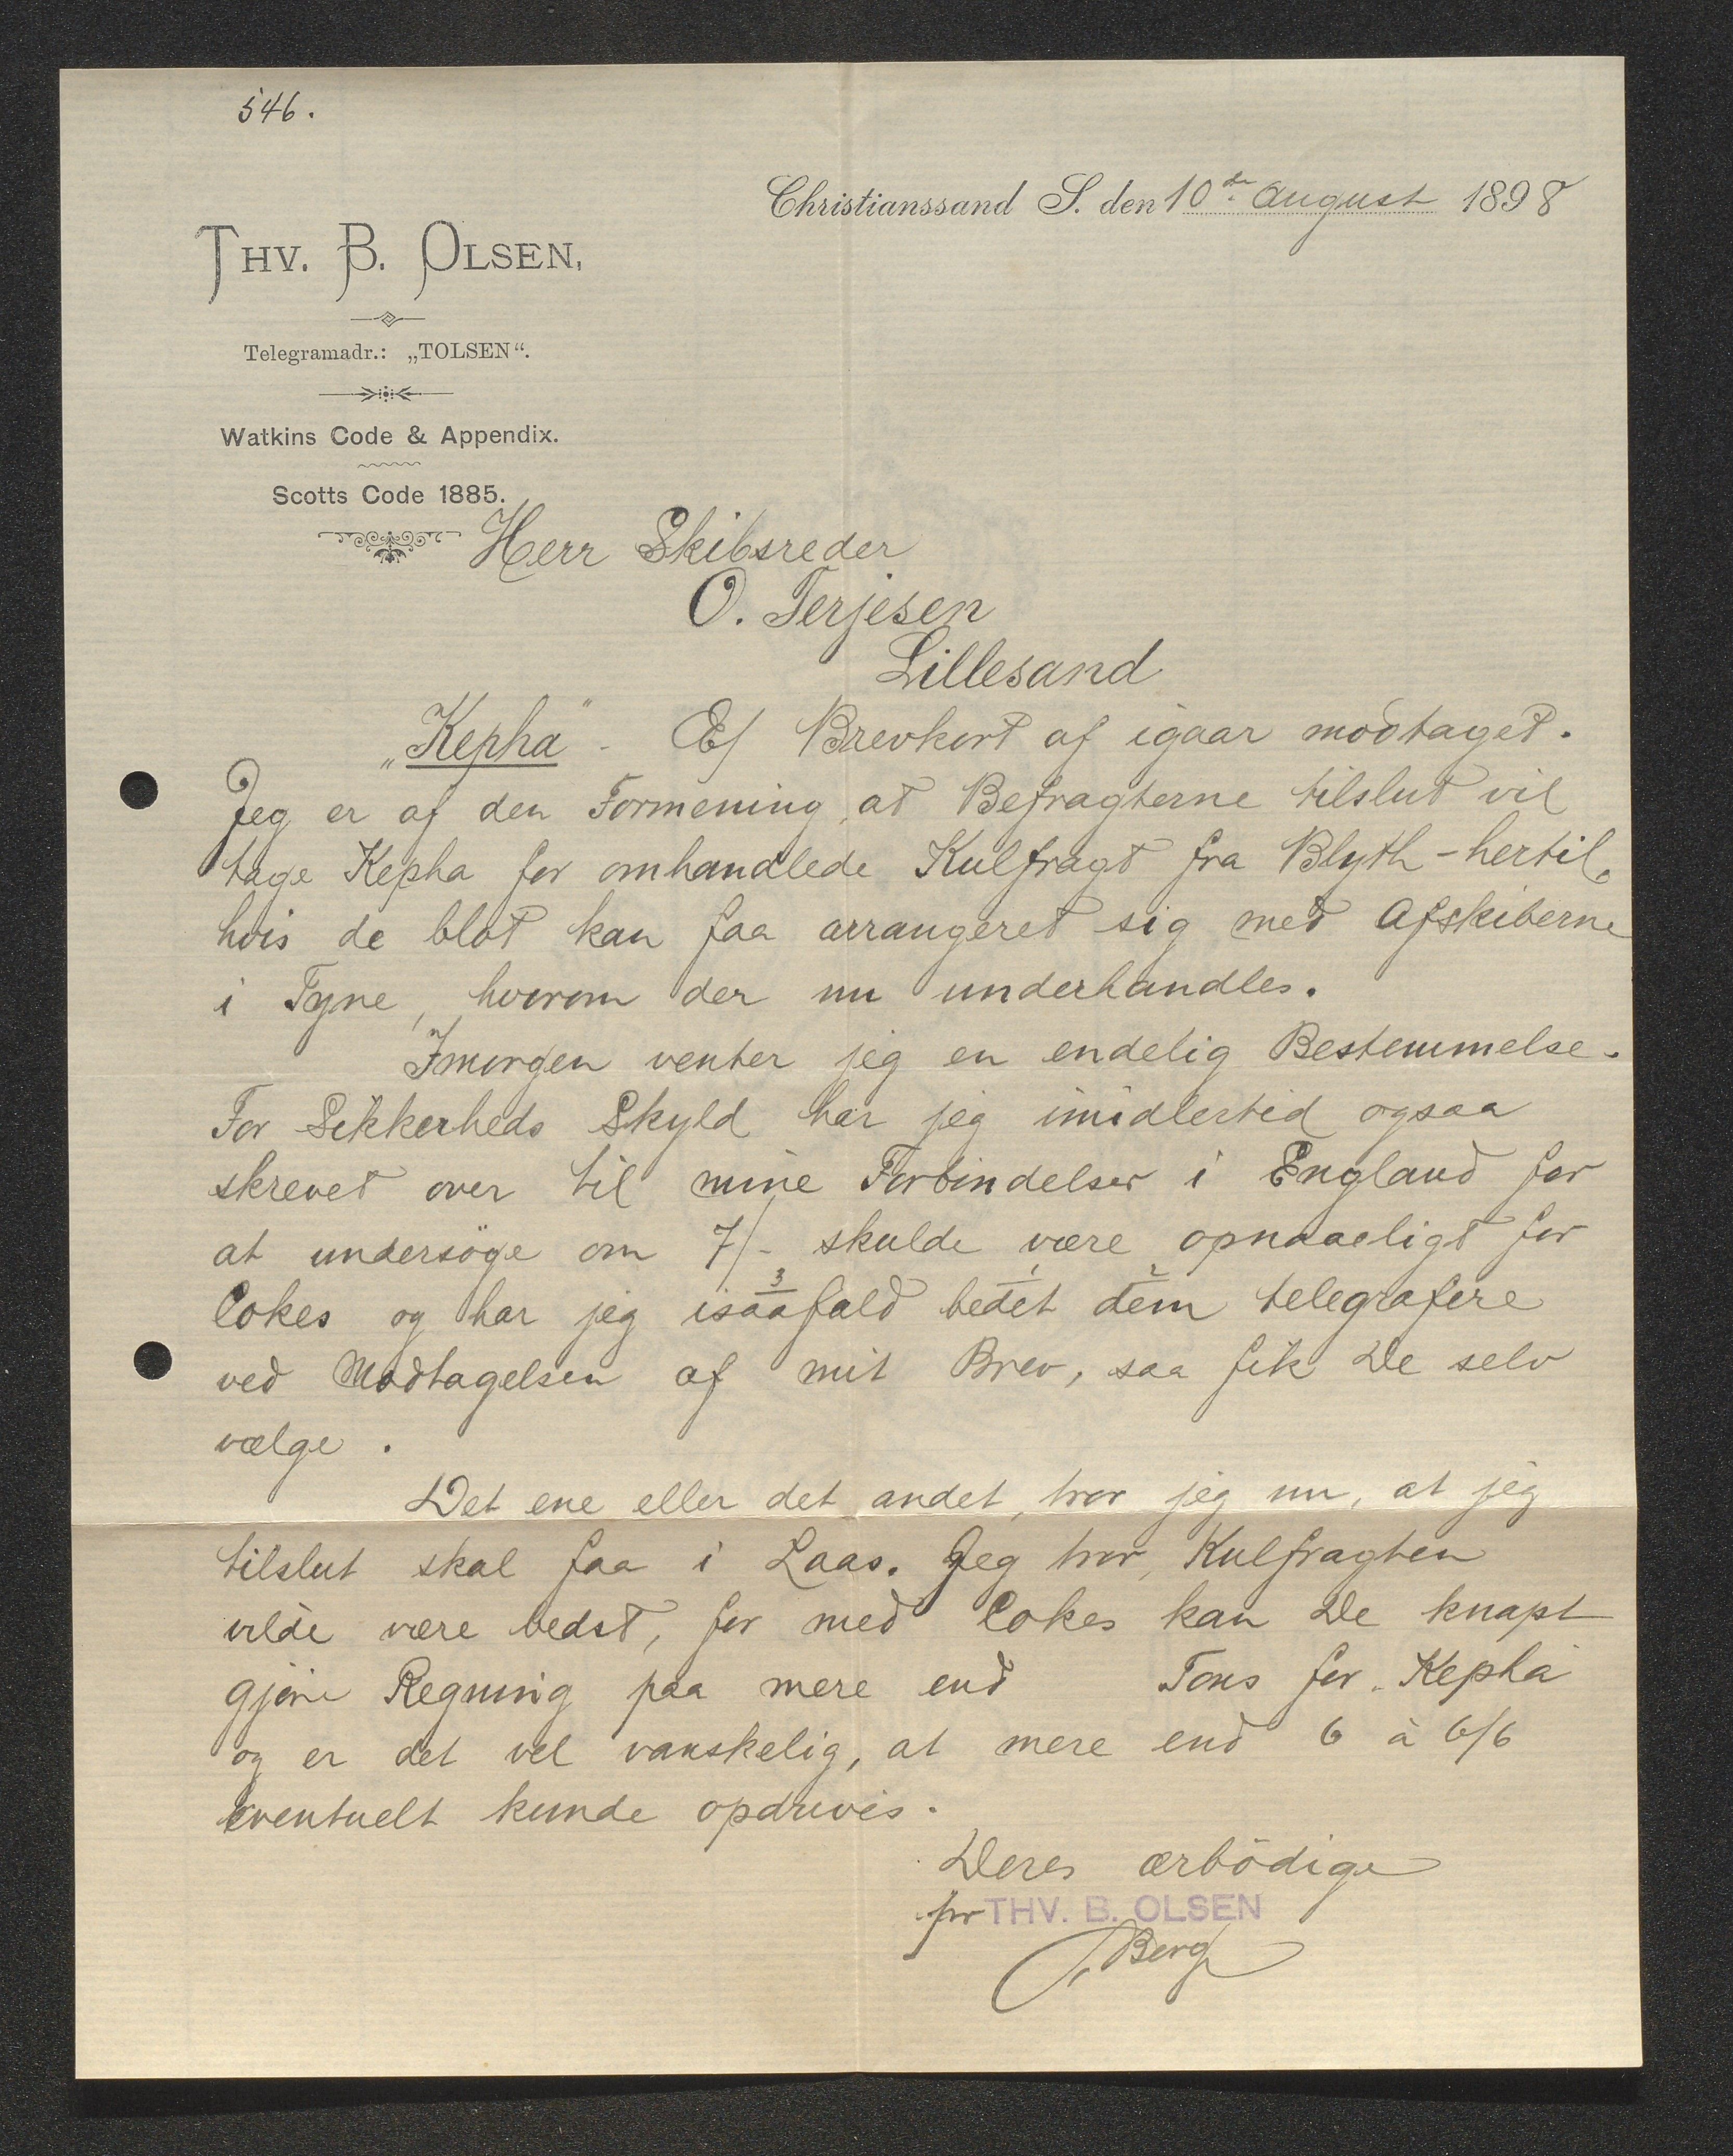 546.
Christianssand S. den 10de August 1898
THV. B. OLSEN,
Telegramadr.: „TOLSEN“.
Watkins Code & Appendix.
Scotts Code 1885.
Herr Skibsreder
O. Terjesen
Lillesand
„Kepha“ - E/ Brevkort af igaar modtaget.
Jeg er af den Formening, at Befragterne tilslut vil
tage Kepha for omhandlede Kulfragt fra Blyth - hertil,
hvis de blot kan faa arrangeret sig med Afskiberne
i Tyne, hvorom der nu underhandles.
Imorgen venter jeg en endelig Bestemmelse.
For Sikkerheds Skyld har jeg imidlertid ogsaa
skrevet over til mine Forbindelser i England for
at undersöge om 7/- skulde være opnaaeligt for
3 1 2
Cokes og har jeg isaafald bedet dem telegrafere
ved Modtagelsen af mit Brev, saa fik De selv
vælge.
Det ene eller det andet, tror jeg nu, at jeg
tilslut skal faa i Laas. Jeg tror, Kulfragten
vilde være bedst, for med Cokes kan De knapt
gjöre Regning paa mere end Tons for „Kepha“
og er det vel vanskelig, at mere end 6 à 6/6
eventuelt kunde opdrives.
Deres ærbödige
for THV. B. OLSEN
Berg